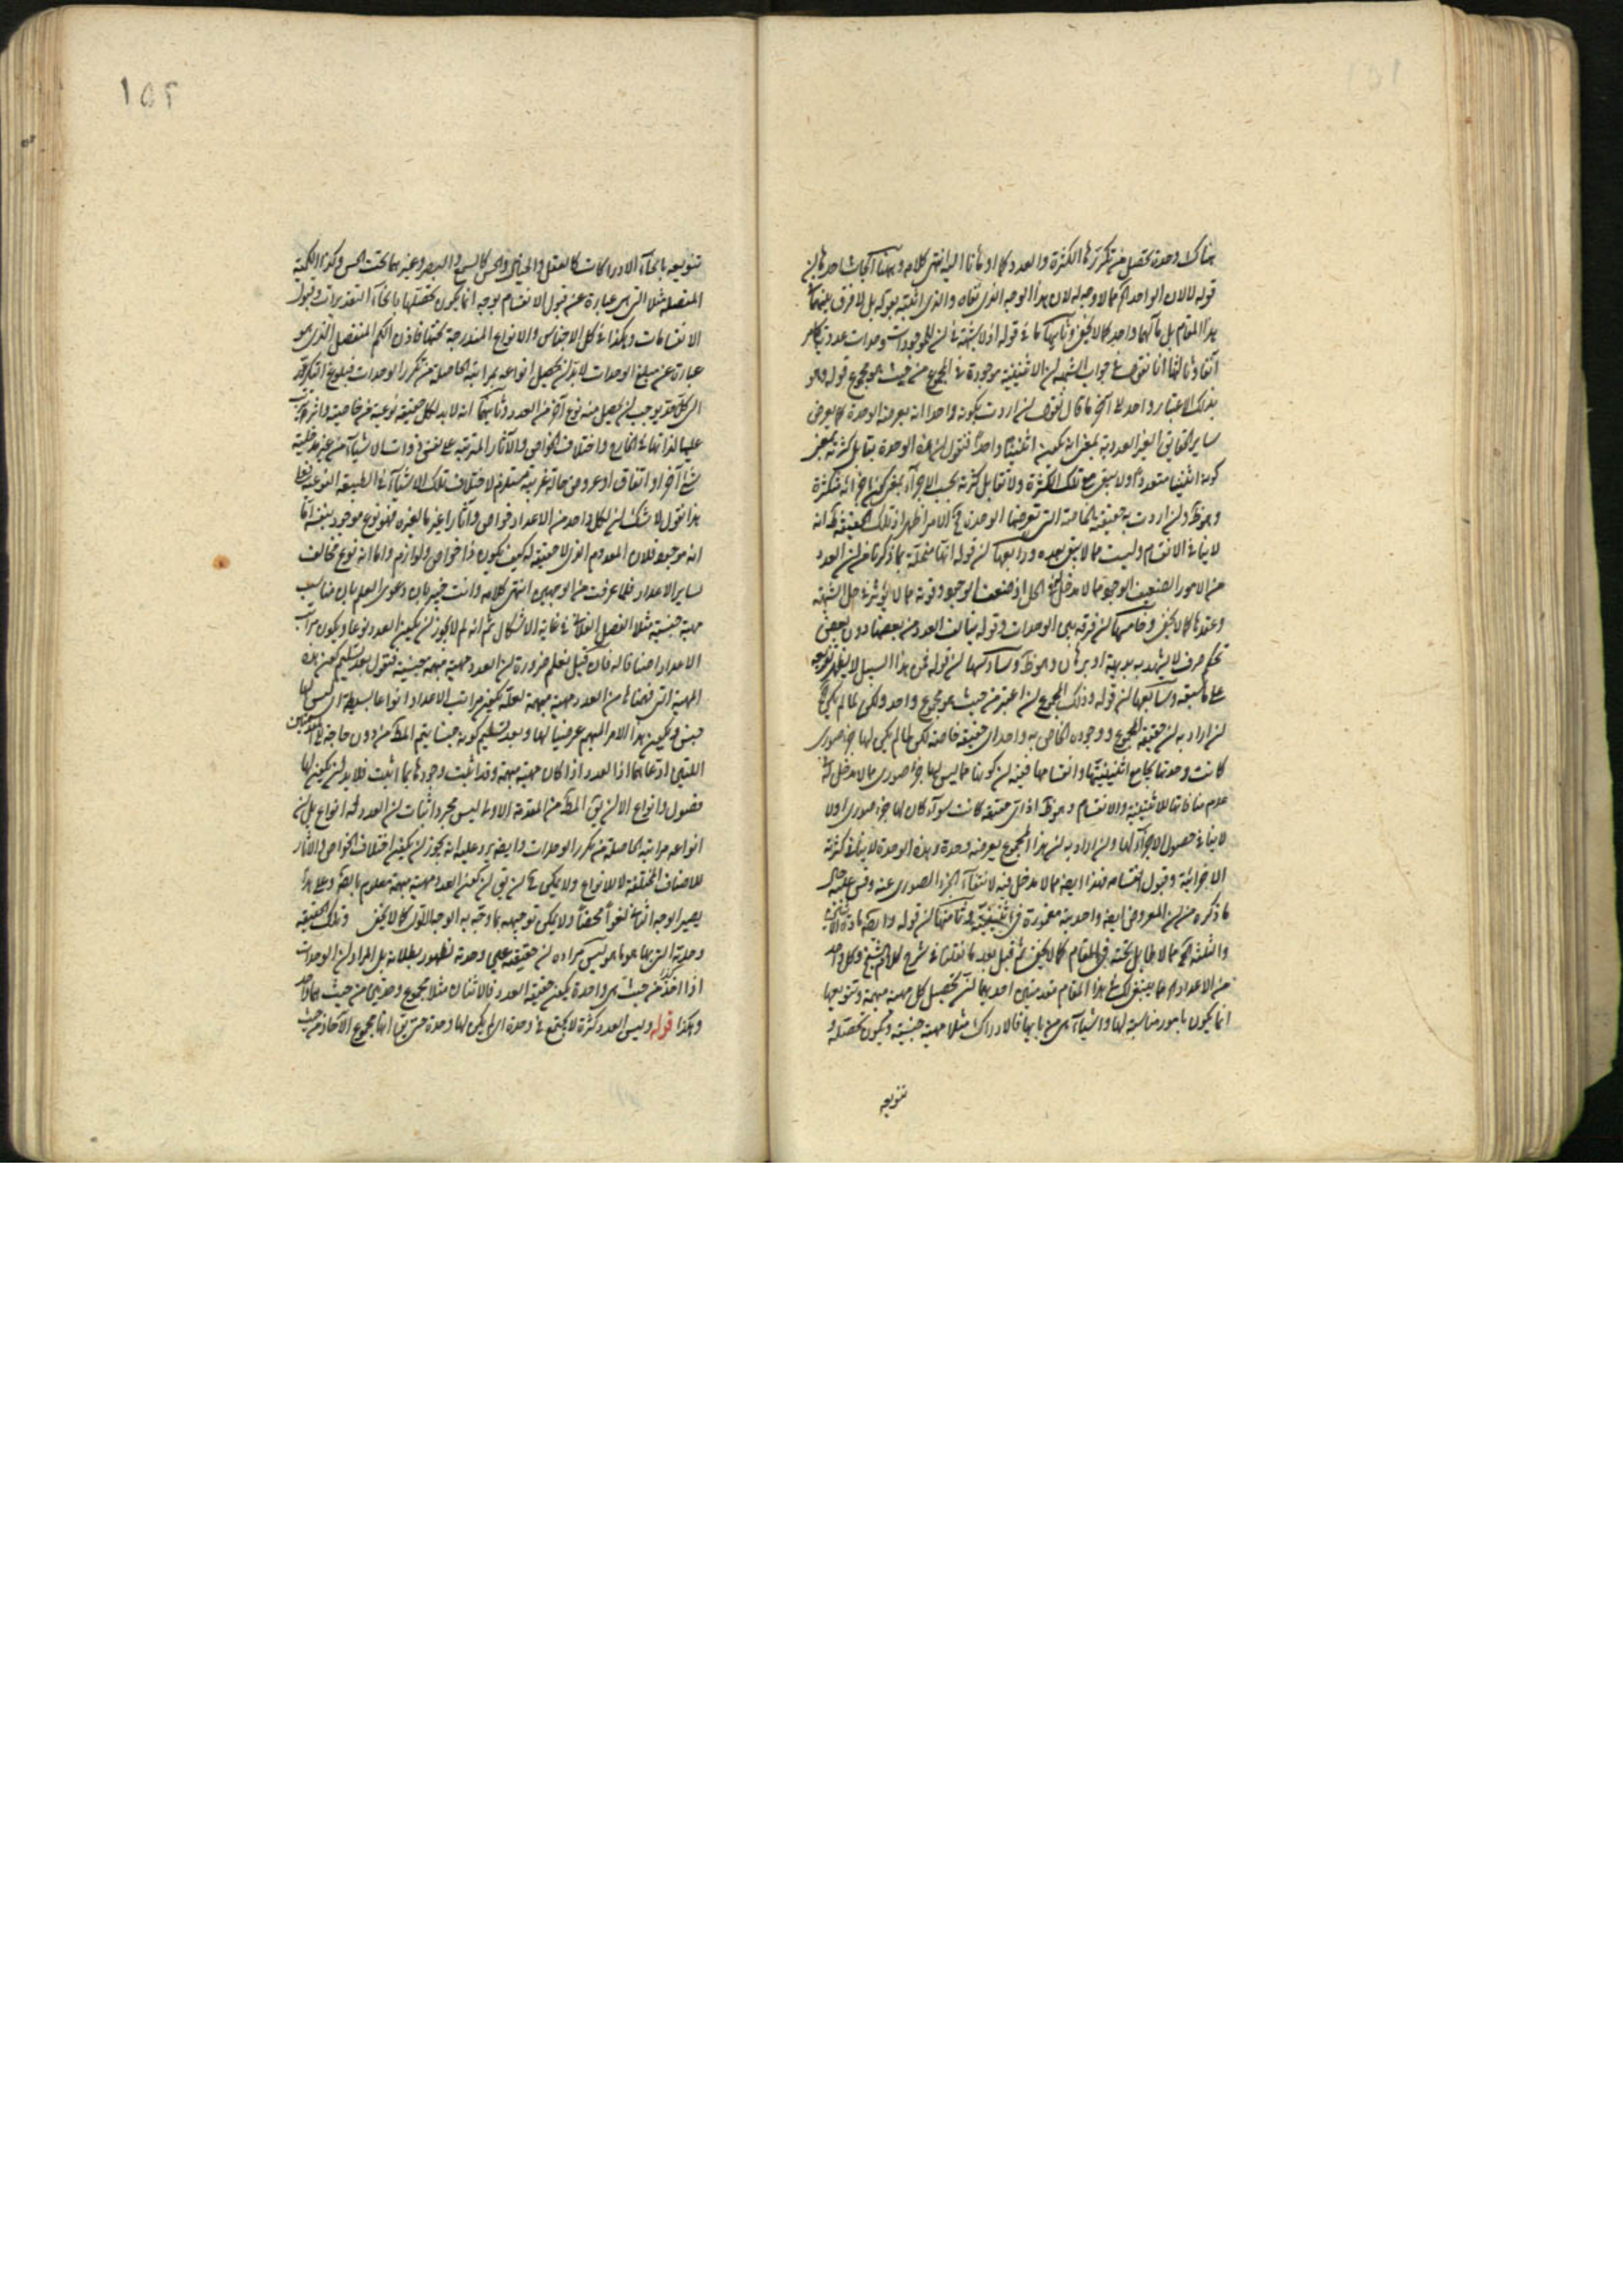 هناك وحدة يحصل من تكررها الكثرة والعدد كما اومأنا اليه انتهى كلامه وههنا ابحاث احدها ان
قوله لا لان الواحد الخ مما لا وجه له لان هذا الوجه الذى نفاه والذى اثبته بقوله بل لا فرق بينهما فى
هذا المقام بل مآلهما واحد كما لا يخفى وثانيها ما فى قوله اذ لا شبهة فى ان للموجودات وحدات عددية كما مر
آنفا وثالثها انا نقول فى جواب الشبهة ان الاثنينية موجودة فى المجموع من حيث هو مجموع قوله وهو
بذلك الاعتبار واحد الى آخر ما قال نقول ان اردت بكونه واحدا انه يعرضه الوحدة كما يعرض
ساير الحقايق الغير العددية بمعنى انه يكون اثنينا واحدا فنقول ان هذه الوحدة يقابل كثرته بمعنى
كونه اثنينا متعددا ولا يبقى مع تلك الكثرة ولا تقابل كثرته بحسب الاجزاء بمعنى كون اجزائه متكثرة
وهو ظ وان اردت به حقيقته الخاصة التى تعرضها الوحدة فالامر اظهر اذ تلك الحقيقة كما انه
لا ينافى الانقسام وليست مما لا يبقى بعده ورابعها ان قوله انها منحلة بما ذكرنا من ان العدد
من الامور الضعيف الوجود مما لا مدخل له فى الحل اذ ضعف الوجود وقوته مما لا يؤثر فى حل الشبهة
وعقدها كما لا يخفى وخامسها ان فرقه بين الوحدات وقوله يتألف العدد من بعضها دون بعض
تحكم صرف لا يشهد به بديهة او برهان وهو ظ وسادسها ان قوله فمن هذا السبيل لا يظهر تفرعه
على ما سبقه وسابعها ان قوله وذلك المجموع ان اعتبر من حيث هو مجموع واحد ولكن لما لم يكن الخ
ان اراد به ان حقيقة المجموع ووجوده الخاص به واحد اى حقيقة خاصة لكن لما لم يكن لها جزء صورى
كانت وحدتها يجامع اثنينيتها وانقسامها ففيه ان كونها مما ليس لها جزء صورى مما لا مدخل له فى
عدم منافاتها للاثنينية والانقسام وهو ظ اذ اى حقيقة كانت سواء كان لها جزء صورى او لا
لا ينافى حصول الاجزاء لها وان اراد به ان هذا المجموع يعرضه وحدة وهذه الوحدة لا ينافى كثرته
الاجزائية وقبول انقسامه فهذا ايضا مما لا مدخل فيه لانتفاء الجزء الصورى عنه وقس عليه حال
ما ذكره من ان المعروض ايضا واحديته مغمورة فى اثنينيته وثامنها ان قوله وايضا مادة الاثنين
والثلثة الخ مما لا طايل تحته فى المقام كما لا يخفى ثم قيل بعد ما نقلنا فى شرح كلام الشيخ وكل واحد
من الاعداد الخ مما ينبغى لك فى هذا المقام مقدمتين احديهما ان تحصيل كل مهية مبهمة وتنويعها
انما يكون بامور مناسبة لها واشياء هى من بابها فالادراك مثلا مهية جنسية ويكون تحصله و
تنويعه
١٥٢
تنويعه بانحاء الادراكات كالتعقل والتخيل والحس كالسمع والبصر وغيرهما تحت الحس وكذا الكمية
المتصلة مثلا التى هى عبارة عن قبول الانقسام بوجه انما يكون تحصلها بانحاء التقديرات وقبول
الانقسامات وهكذا فى كل الاجناس والانواع المندرجة تحتها فاذن الكم المنفصل الذى هو
عبارة عن مبلغ الوحدات لا بد ان تحصل انواعه بمراتبه الحاصلة من تكرر الوحدات فبلوغ التكرر
الى كل حد يوجب ان يحصل منه نوع آخر من العدد وثانيهما انه لا بد لكل حقيقة نوعية من خاصية واثر يترتب
عليها لذاتها فى الخارج واختلاف الخواص والآثار المترتبة على نفس ذوات الاشياء من غير مدخلية
شئ آخر او اتفاق او عروض حالة غريبة مستلزم لاختلاف تلك الاشياء فى الطبيعة النوعية فعلى
هذا نقول لا شك ان لكل واحد من الاعداد خواص وآثارا غير ما لغيره فهو نوع موجود بنفسه اما
انه موجود فلان المعدوم الذى لا حقيقة له كيف يكون ذا خواص ولوازم واما انه نوع مخالف
لساير الاعداد فلما عرفت من الوجهين انتهى كلامه وانت خبير بان دعوى العلم بان مناسب
مهية جنسية مثلا الفصل الفلانى فى غاية الاشكال ثم انه لم لا يجوز ان يكون العدد نوعا ويكون مراتب
الاعداد اصنافا له فان قيل نعلم ضرورة ان العدد مهية مبهمة جنسية فنقول بعد تسليم كون هذه
المهية التى فهمناها من العدد مهية مبهمة لعله يكون مراتب الاعداد انواعا بسيطة اى ليس لها
جنس ويكون هذا الامر المبهم عرضيا لها وبعد تسليم كونه جنسا يتم المط من دون حاجة الى المقدمتين
اللتين ادعاهما اذ العدد اذا كان مهية مبهمة وقد اثبت وجودها بما اثبت فلا بد ان يكون لها
فصول وانواع الا ان يق المط من المقدمة الاولى ليس مجرد اثبات ان العدد له انواع بل ان
انواعه مراتبه الحاصلة من تكرر الوحدات وايضا يرد عليه انه يجوز ان يكون اختلاف الخواص والآثار
للاصناف المختلفة لا للانواع ولا يكفى فى ان يق ان كون العدد مهية مبهمة معلوم بالبديهة وعلى هذا
يصير الوجه الثانى لغوا محضا ولا يمكن توجيهه بما وجه به الوجه الاول كما لا يخفى وتلك الحقيقة
وحدته التى بها هو ما هو ليس مراده ان حقيقته عين وحدته لظهور بطلانه بل المراد ان الوحدات
اذا اخذت من حيث هى واحدة يكون حقيقة العدد فالاثنان مثلا مجموع وحدتين من حيث هما واحد
وهكذا قوله وليس العدد كثرة لا يجتمع فى وحدة اى لم يكن لها وحدة حتى يق انها مجموع الآحاد من حيث